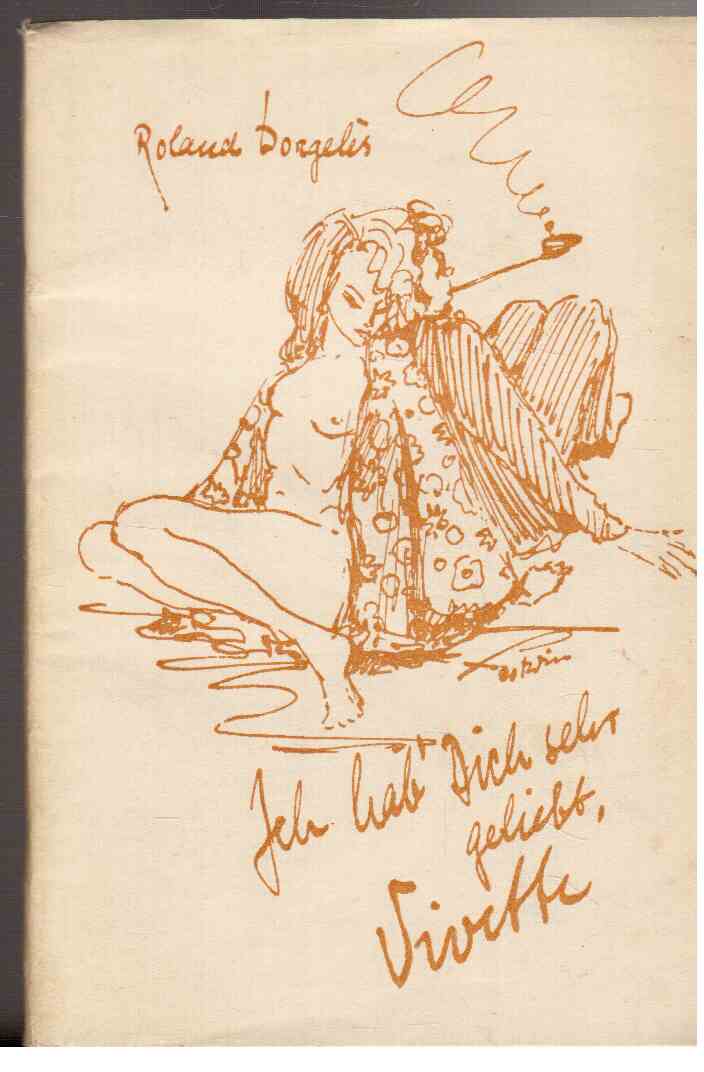 Roland Dorgelès
Ich hab' Dich sehr
geliebt,
Vivette